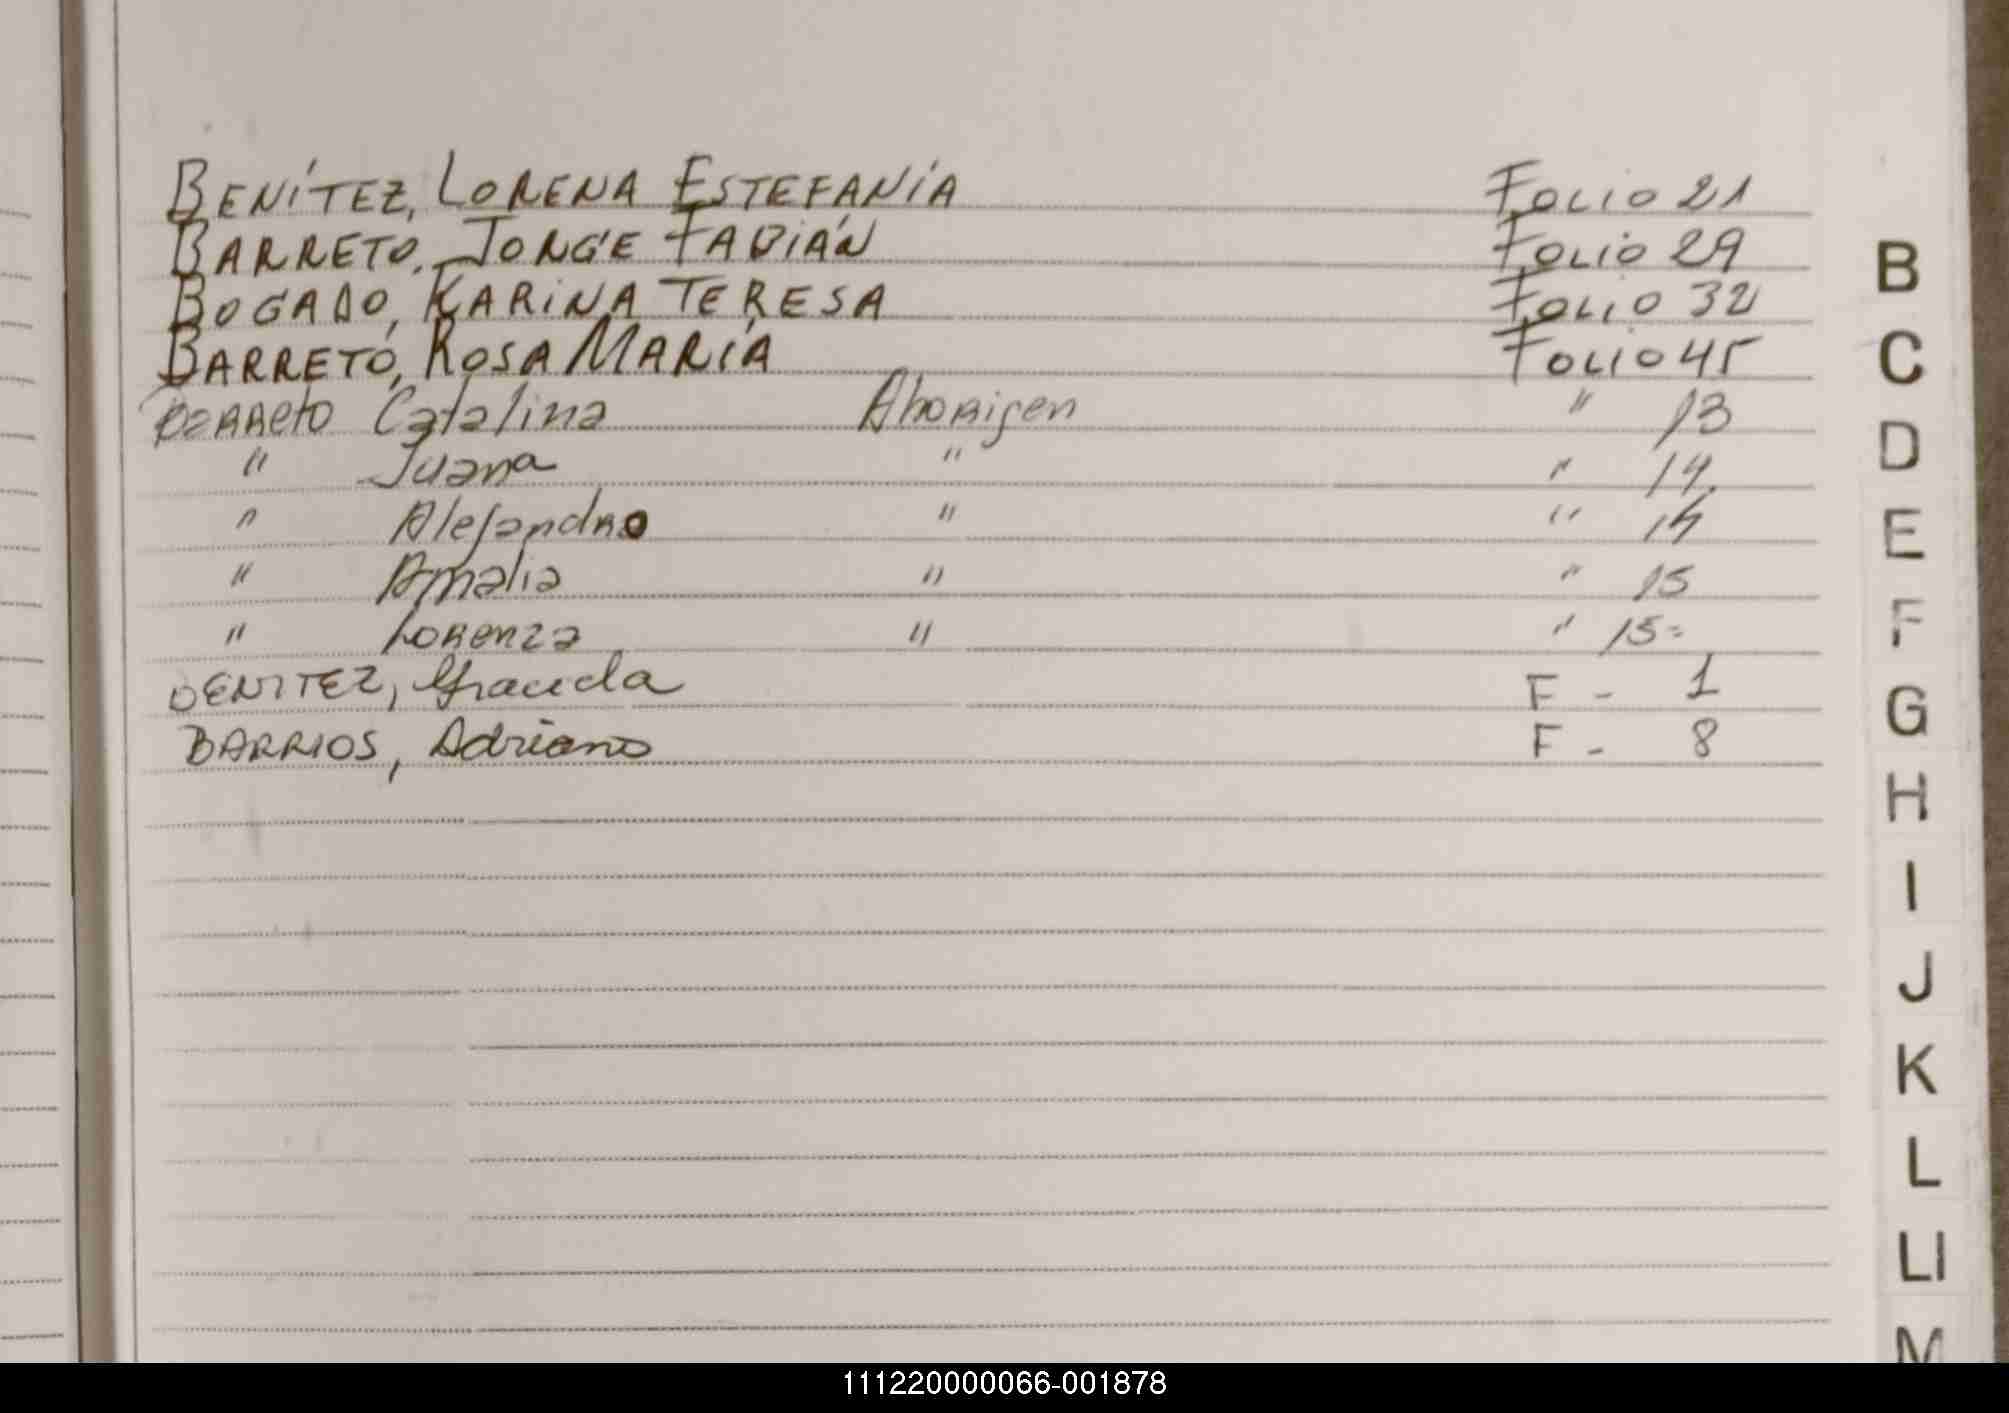 BENÍTEZ, LORENA ESTEFANÍA Folio 21
BARRETO, JORGE FABIÁN Folio 29
BOGADO, KARINA TERESA Folio 32
BARRETO, ROSA MARÍA Folio 45
Barreto Catalina Aborigen " 13
" Juana " " 14
" Alejandro " " 14
" Amalia " " 15
" Lorenza " " 15=
BENITEZ, F - 1
BARRIOS, Adriano F - 8
B
C
D
E
F
G
H
I
J
K
L
Ll
M
111220000066-001878